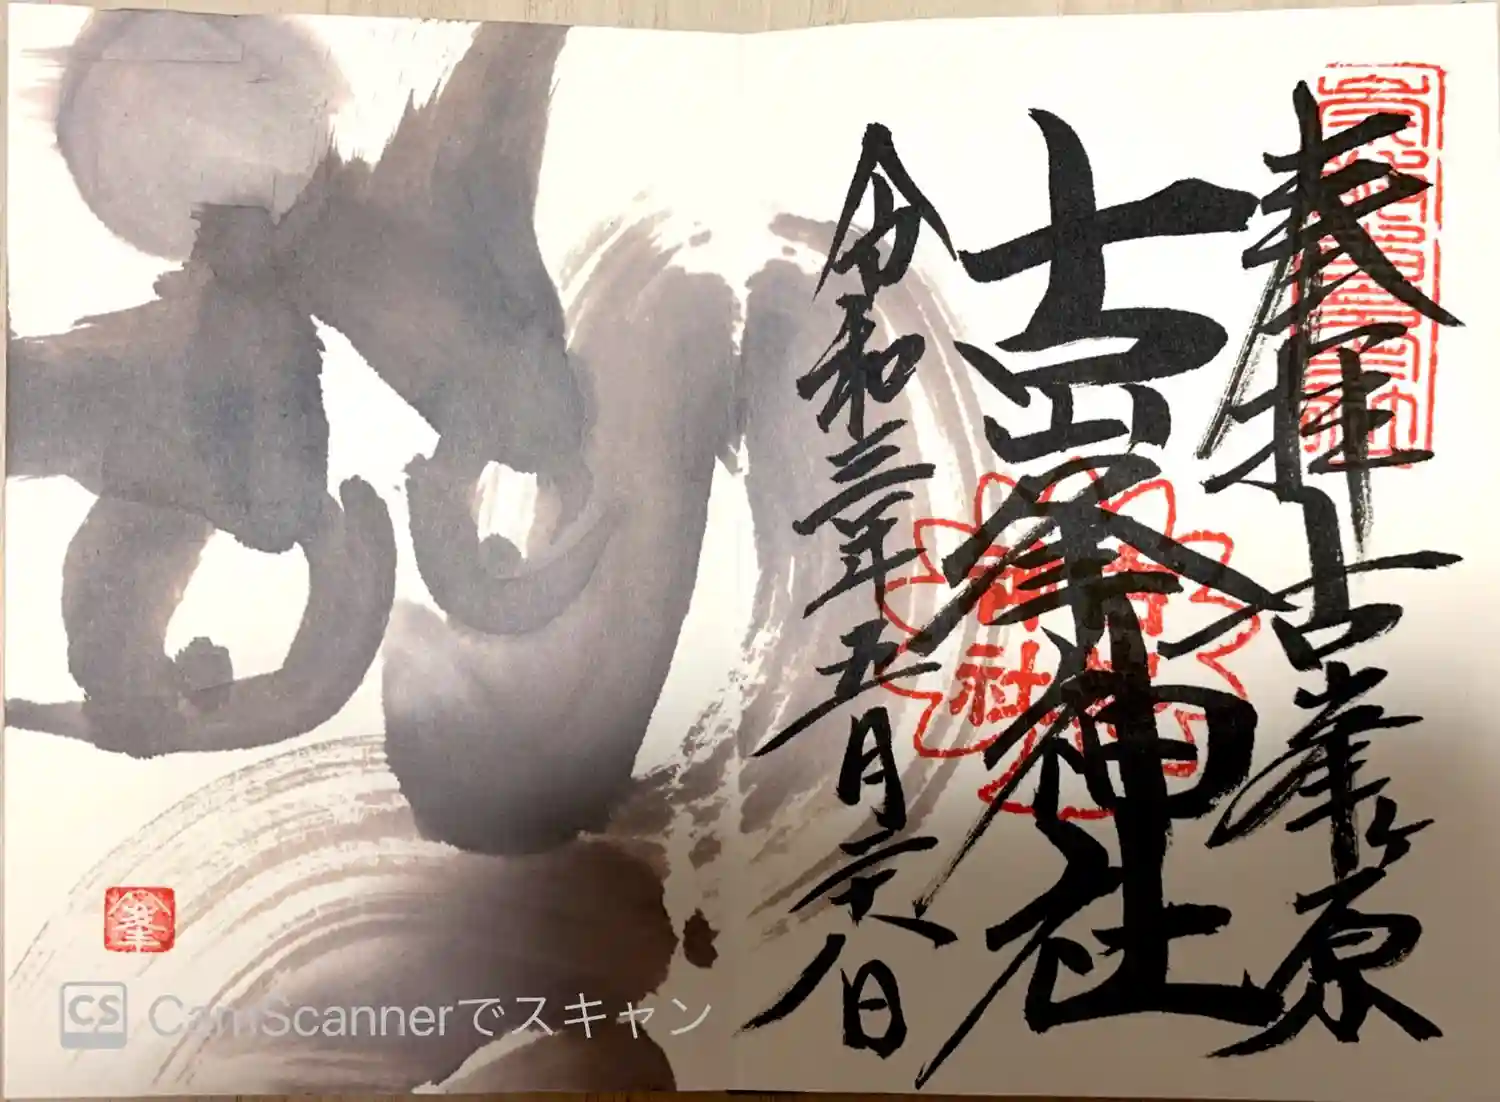 奉拝 古峯ヶ原
古峯神社
令和三年五月二十八日
古峯
神社
峯
CS CamScannerでスキャン